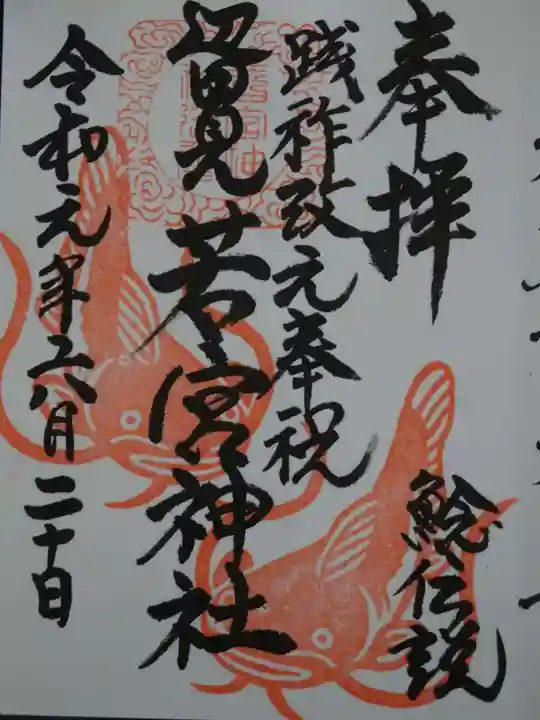 奉拝
鯰伝説
践祚改元奉祝
若宮神社
令和元年六月二十日